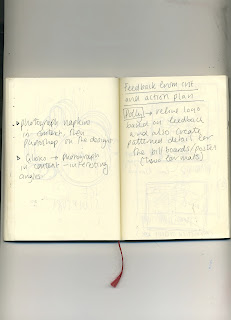 photograph napkins
in context, then
photoshop on the designs
Glenn → photograph
in context - interesting
angles
Feedback from crit
and action plan
Polly → refine logo
based on feedback
and also create
patterned detail for
the bill boards/poster